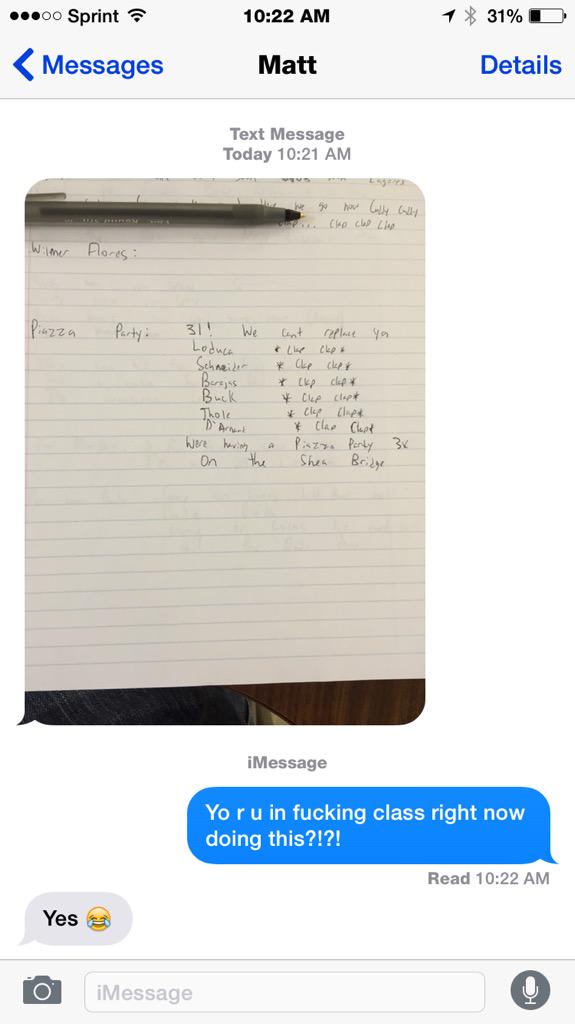 Sprint 10:22 AM 31%
Messages Matt Details
Text Message
Today 10:21 AM
Lagares
we go now Cuddy Cuddy
clap... clap clap clap
Wilmer Flores:
Piazza Party: 31! We cant replace you
Loduca * clap clap*
Schneider * clap clap*
Barajas * clap clap*
Buck * clap clap*
Thole * clap clap*
D'Arnaud * clap clap*
Were having a Piazza Party 3x
On the Shea Bridge
iMessage
Yo r u in fucking class right now
doing this?!?!
Read 10:22 AM
Yes 😂
iMessage